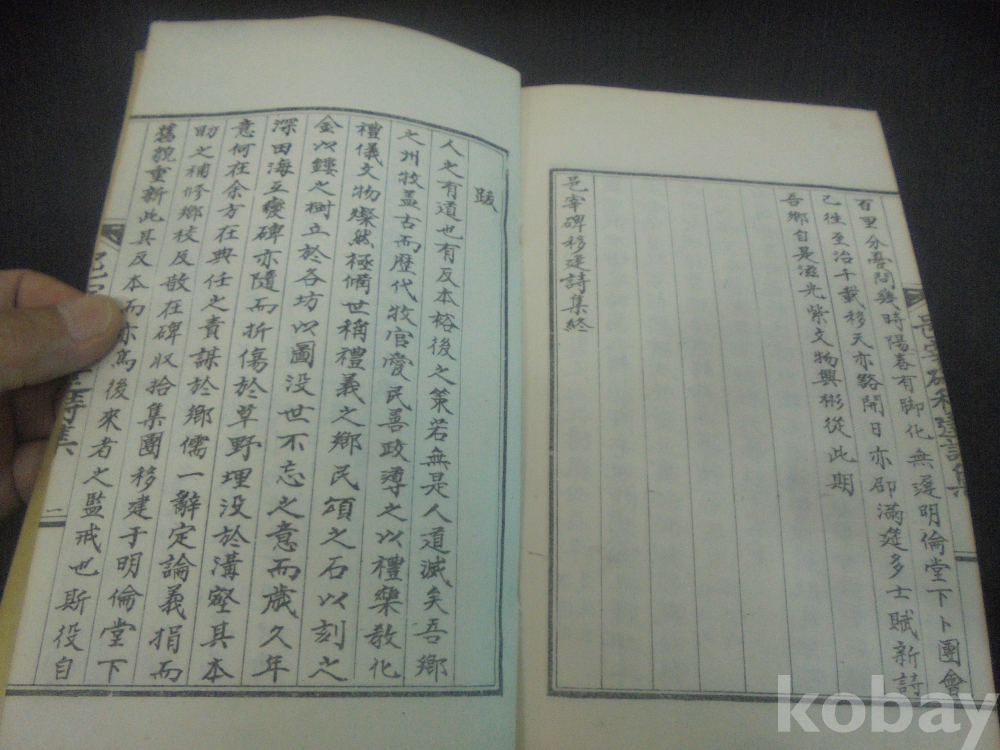 百里分憂問幾時陽春有脚化無遲明倫堂下卜團會
已往至治千載移天亦豁開日亦即滿筵多士賦新詩
吾鄉自是滋光紫文物興彬從此期
邑宰碑移建詩集終
邑宰碑移建詩集
跋
人之有道也有反本裕後之策若無是人道滅矣吾鄉
之州牧盖古而歴代牧官愛民善政導之以禮樂敎化
禮儀文物燦然極備世稱禮義之鄉民頌之石以刻之
金以鏤之樹立於各坊以圖没世不忘之意而歲久年
深田海互變碑亦隨而折傷於草野埋没於溝壑其本
意何在余方在典任之責謀於鄉儒一辭定論義捐而
助之補修鄉校及散在碑収拾集團移建于明倫堂下
舊貌重新此其反本而亦爲後來者之監戒也斯役自
詩集
一
kobay